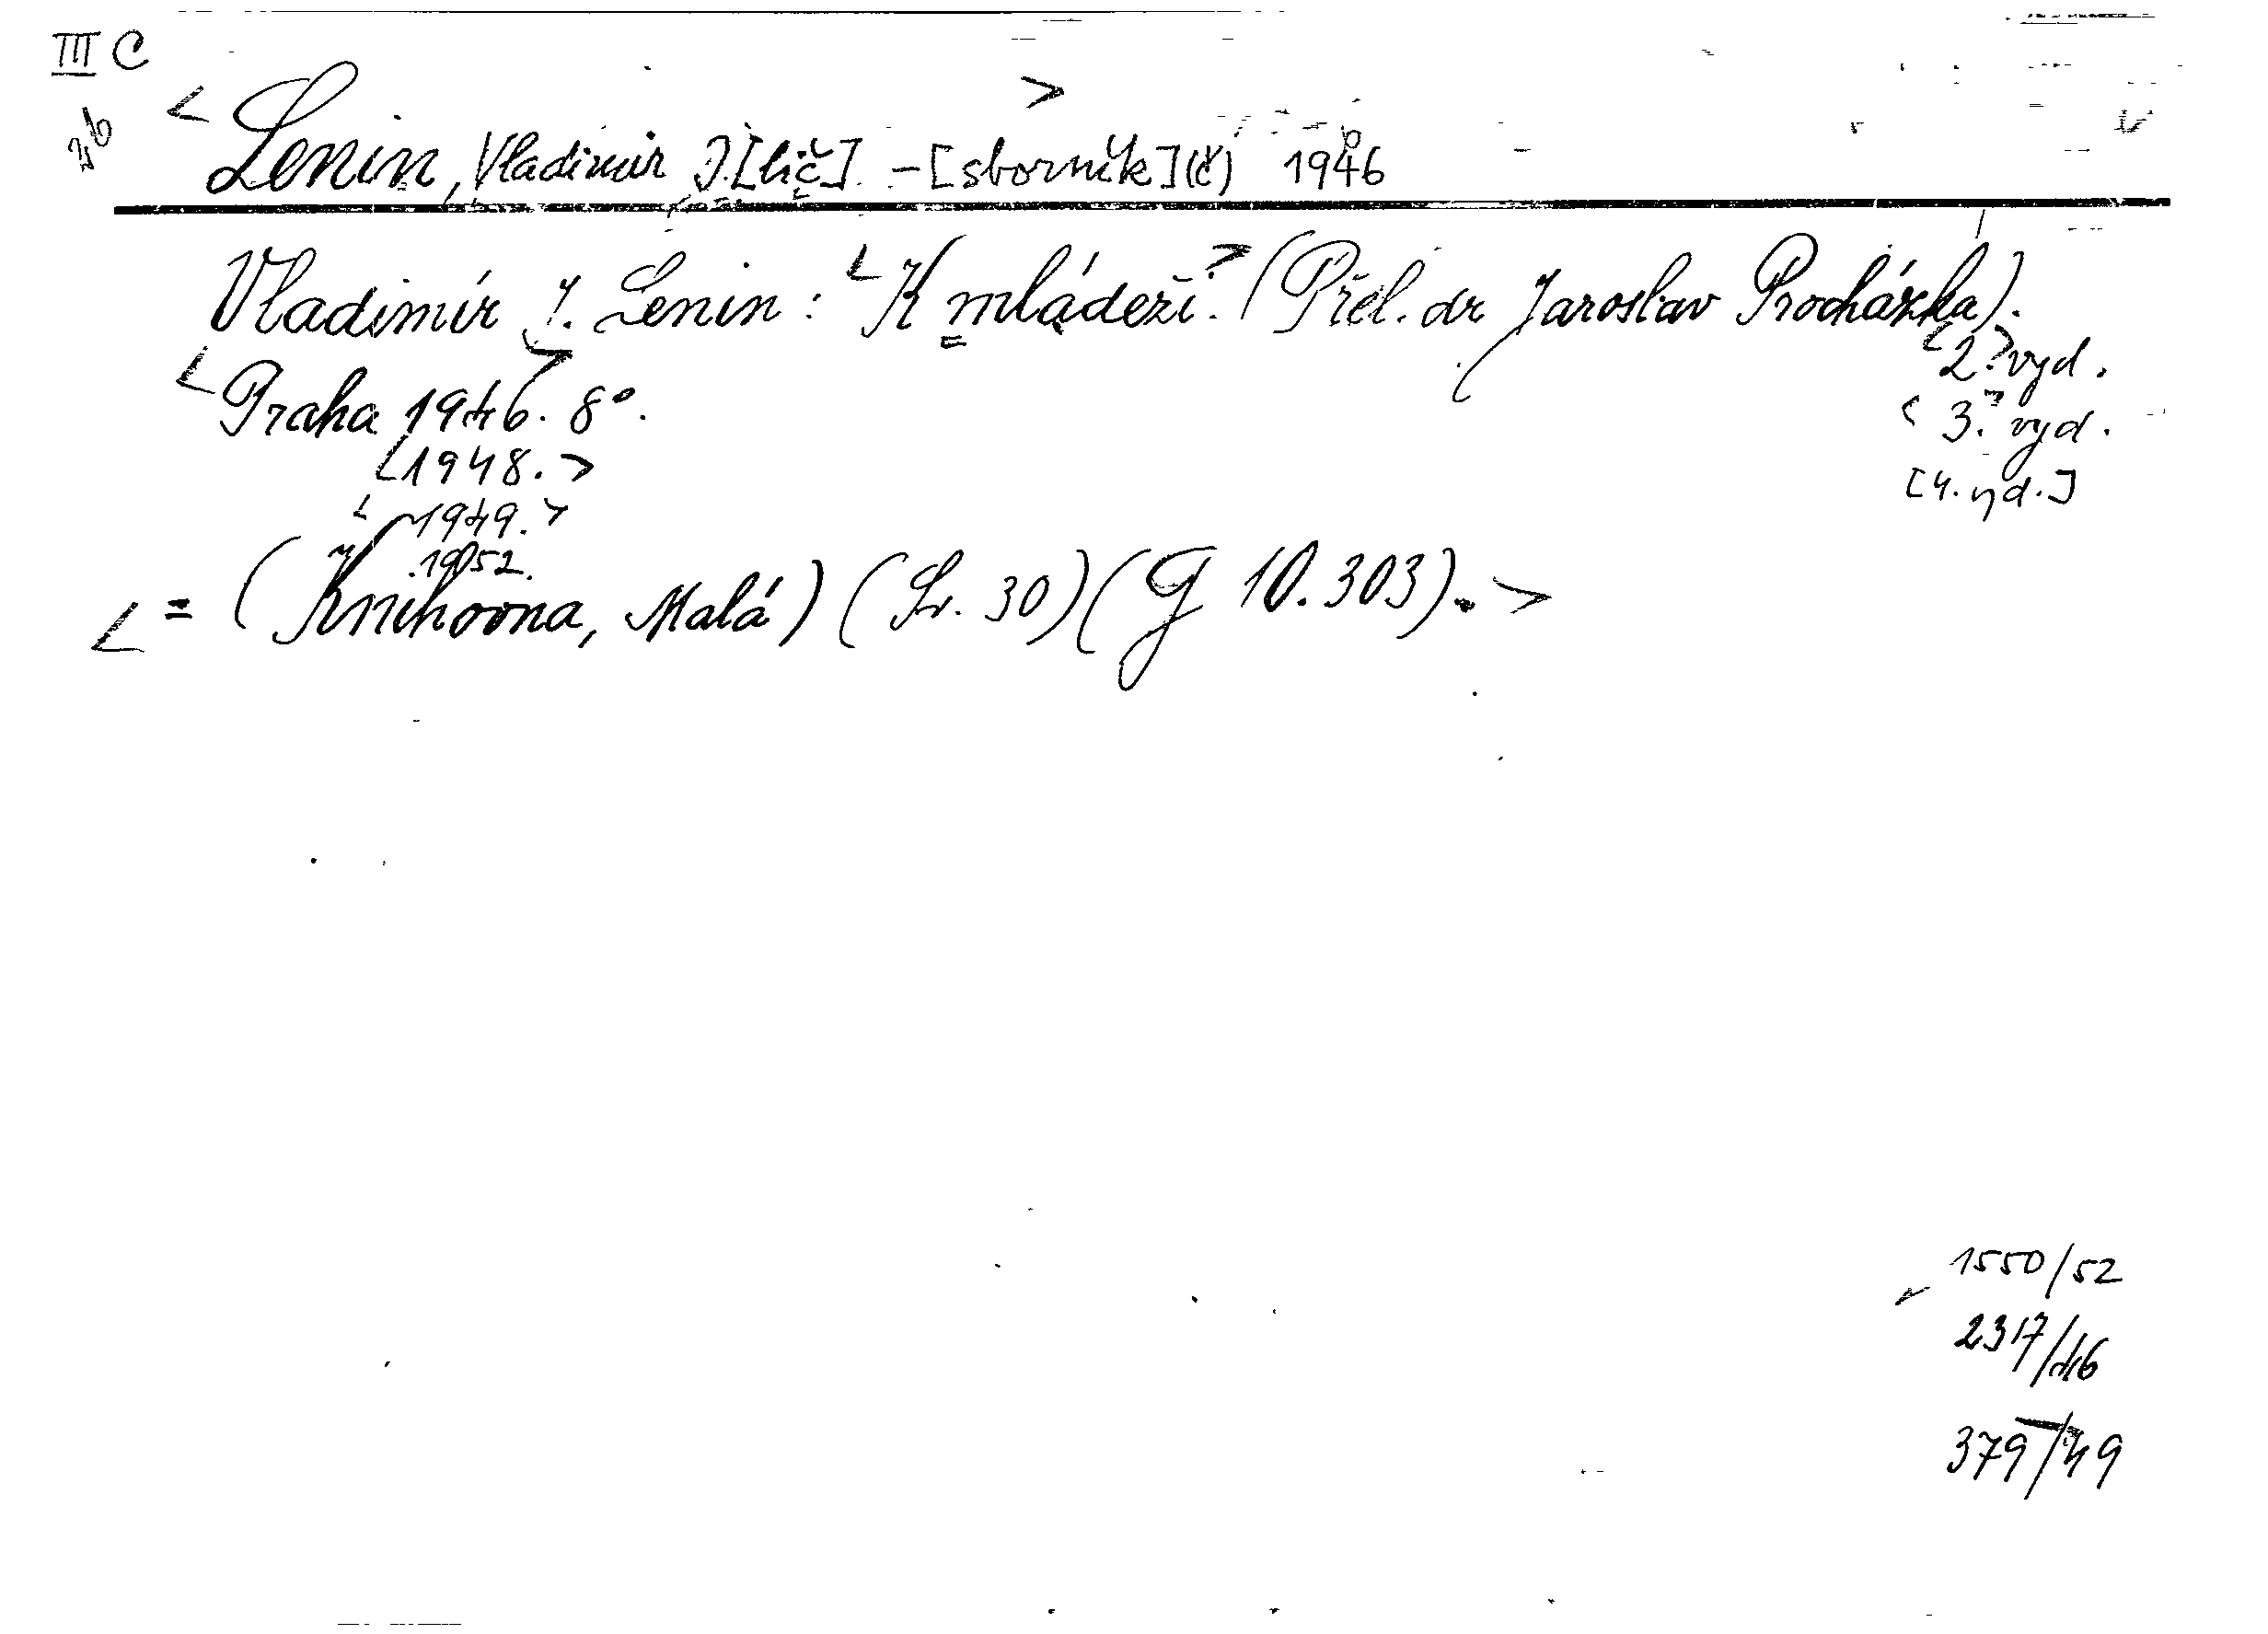 III C
< Lenin, Vladimir I.[lič] > - [sborník](č) 1946
Vladimír I. Lenin: <K mládeži.> (Přel. dr Jaroslav Procházka).
<2.> vyd.
<Praha 1946.> 8°.
<3.> vyd.
<1948.>
[4. vyd.]
<1949.>
1952.
<= (Knihovna, Malá) (Sv. 30) (G 10.303).>
1550/52
2317/46
379/49